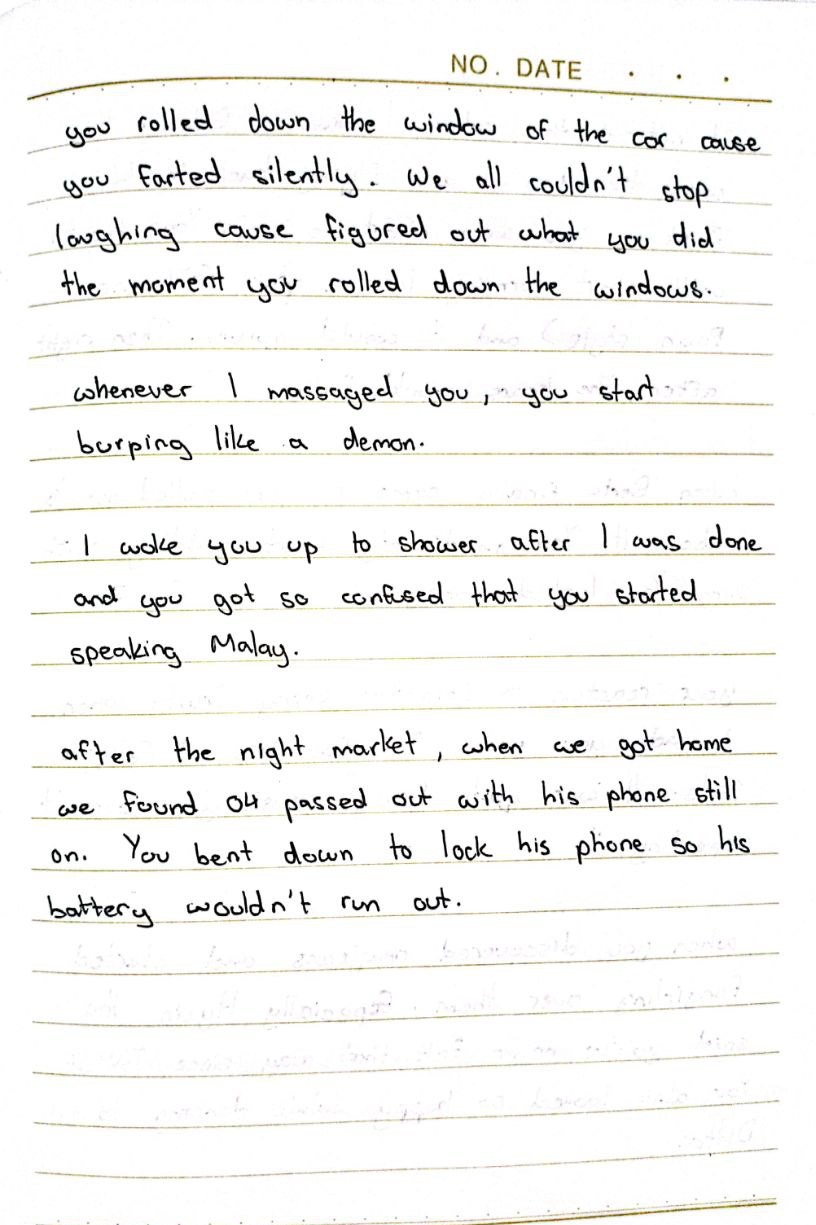 NO. DATE . . .
you rolled down the window of the car cause
you farted silently. We all couldn't stop
laughing cause figured out what you did
the moment you rolled down the windows.
whenever I massaged you, you start
burping like a demon.
I woke you up to shower after I was done
and you got so confused that you started
speaking Malay.
after the night market, when we got home
we found 04 passed out with his phone still
on. You bent down to lock his phone so his
battery wouldn't run out.